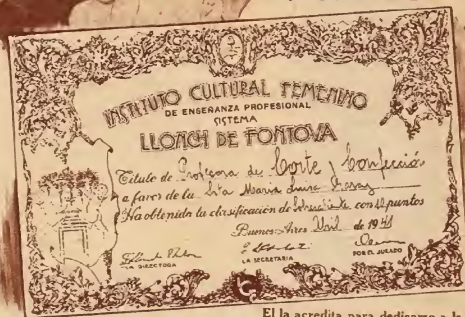 INSTITUTO CULTURAL FEMENINO
DE ENSEÑANZA PROFESIONAL
SISTEMA
LLONCH DE FONTOVA
Título de Profesora de Corte y Confección
a favor de la Srta María Luisa
Ha obtenido la clasificación de Sobresaliente con 10 puntos
Buenos Aires Abril de 1941
LA DIRECTORA
LA SECRETARIA
POR EL JURADO
El la acredita para dedicarse a la